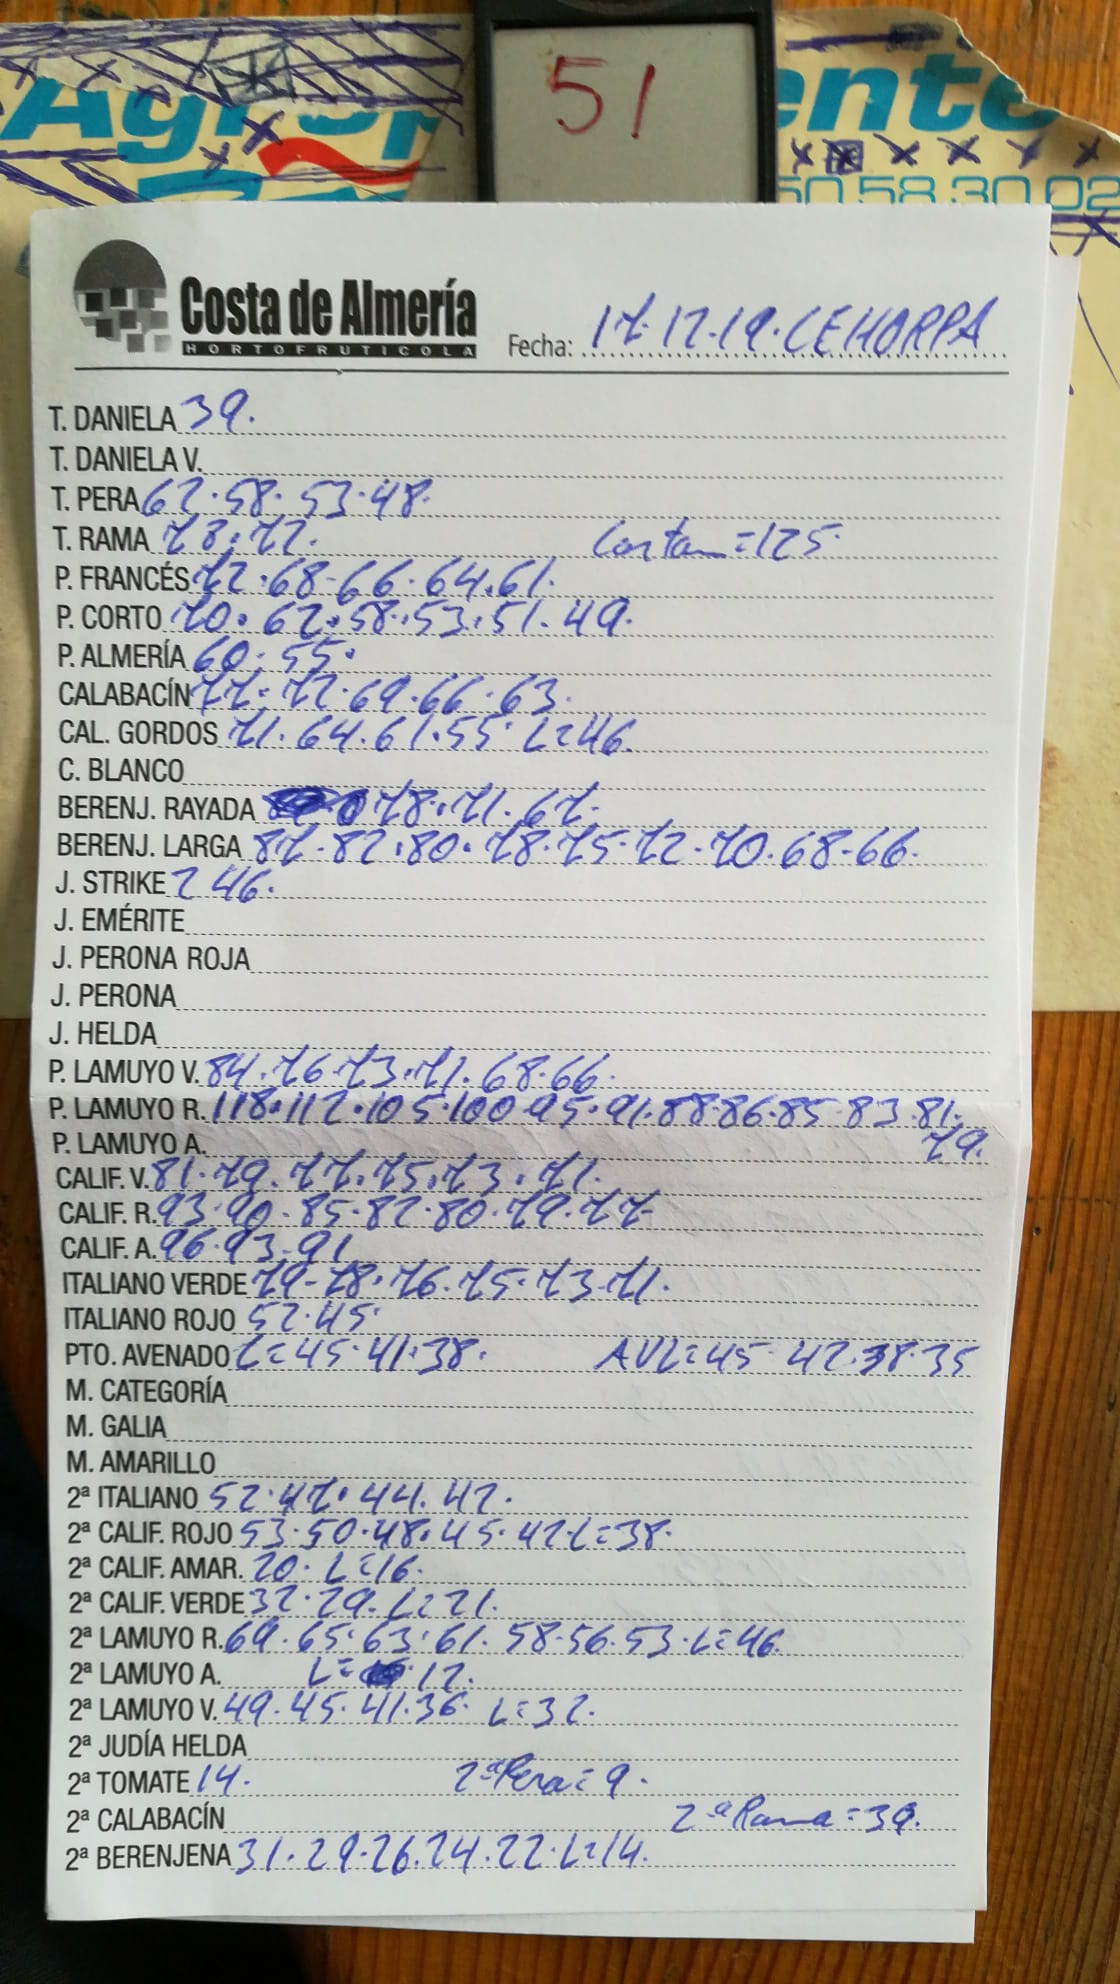 51
Agrup
ente
50.58.30.02
Costa de Almería
HORTOFRUTICOLA
Fecha: 17.12.19. CEHORPA
T. DANIELA 39.
T. DANIELA V.
T. PERA 62.58.53.48.
T. RAMA 78.72. =125.
P. FRANCÉS 72.68-66.64.61.
P. CORTO 70.62.58.53.51.49.
P. ALMERÍA 60.55.
CALABACÍN 77.72.69.66.63.
CAL. GORDOS 71.64.61.55. L=46.
C. BLANCO
BERENJ. RAYADA 78.71.67.
BERENJ. LARGA 87-82.80.78.75-72-70.68-66.
J. STRIKE 246.
J. EMÉRITE
J. PERONA ROJA
J. PERONA
J. HELDA
P. LAMUYO V. 84.76.73.71.68.66.
P. LAMUYO R. 118.112.105.100.95.91.88-86-85-83-81.
P. LAMUYO A. 79.
CALIF. V. 81.79.77.75.73.71.
CALIF. R. 93.90-85-82-80.79.77-
CALIF. A. 96.93-91
ITALIANO VERDE 79-78.76.75.73.71.
ITALIANO ROJO 52.45.
PTO. AVENADO L=45.41.38. AVL=45.42.38.35
M. CATEGORÍA
M. GALIA
M. AMARILLO
2ª ITALIANO 52.47.44.42.
2ª CALIF. ROJO 53.50.48.45.42 L=38.
2ª CALIF. AMAR. 20. L=16.
2ª CALIF. VERDE 32.29. L=21.
2ª LAMUYO R. 69.65.63.61.58-56.53. L=46.
2ª LAMUYO A. L= 12.
2ª LAMUYO V. 49.45.41.36. L=32.
2ª JUDÍA HELDA
2ª TOMATE 14. 2ªPera=9.
2ª CALABACÍN 2ªRama=39.
2ª BERENJENA 31.29.26.24.22. L=14.